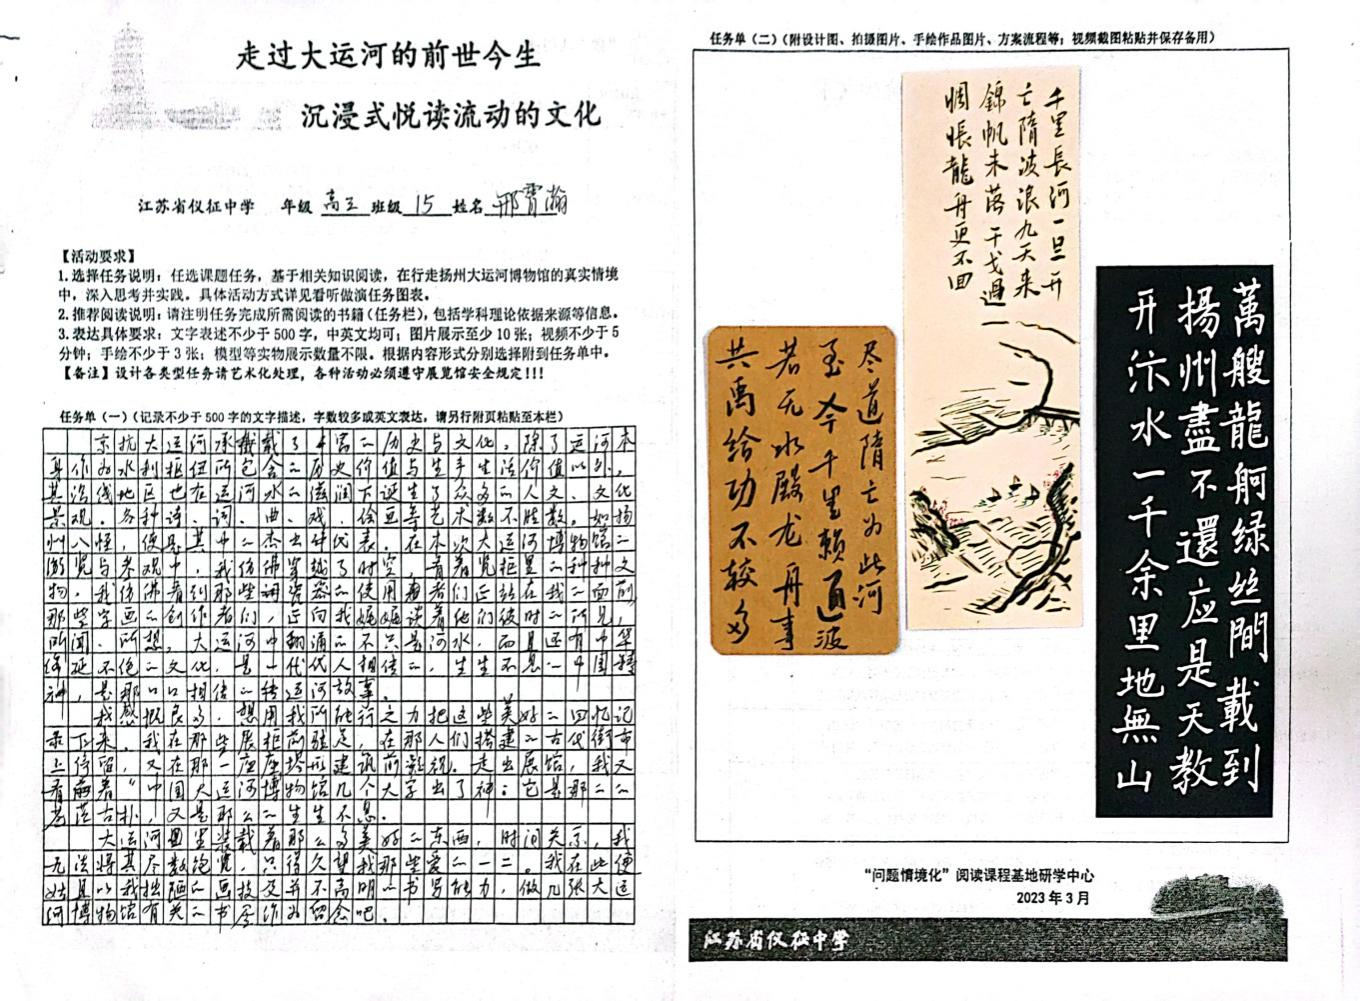 走过大运河的前世今生
沉浸式悦读流动的文化
江苏省仪征中学 年级 高三 班级 15 姓名 邢霄瀚
【活动要求】
1.选择任务说明：任选课题任务，基于相关知识阅读，在行走扬州大运河博物馆的真实情境
中，深入思考并实践。具体活动方式详见看听做演任务图表。
2.推荐阅读说明：请注明任务完成所需阅读的书籍（任务栏），包括学科理论依据来源等信息。
3.表达具体要求：文字表述不少于500字，中英文均可；图片展示至少10张；视频不少于5
分钟；手绘不少于3张；模型等实物展示数量不限。根据内容形式分别选择附到任务单中。
【备注】设计各类型任务请艺术化处理，各种活动必须遵守展览馆安全规定！！！
任务单（一）（记录不少于500字的文字描述，字数较多或英文表达，请另行附页粘贴至本栏）
京抗大运河承载了丰富的历史与文化，除了运河本
身作为水利枢纽所包含的历史价值与生于生活价值以外，
其沿线地区也在运河水的滋润下诞生了众多的人文、文化
景观。各种诗、词、曲、戏、绘画等艺术数不胜数。如扬
州八怪，便是其中的杰出时代表。在本次大运河博物馆的
游览与参观中，我仿佛穿越了时空，看着览柜里的种种文
物，我仿佛看到那些调瓷器的使用者们正站在我的面前，
那些字画的创作者们，正向我娓娓谈着他们彼时的所见，
所闻、所想，大运河中翻涌的不只是河水，而且还有中华
绵延不绝的文化，是一代代人相传的，生生不息的中国精
神，是那口口相传的转运河故事。
我感概良多，想用我所能行之力把这些美好的回忆记
录下来。我在那些展柜前驻足，在那人们搭建的古代街市
上停留，又在那一座座塔形建筑前凝视。走出展馆，我又
看着“中国大运河博物馆几个大字出了神：它是那么的
苍茫古朴，又是那么的生生不息。
大运河里装载着那么多美好的东西，时间关系，我
无法将其尽数饱览，只得久望我那些爱的一二。我在此便
姑且以我拙陋的画技及并不高明的书写能力，做几张大运
河博物馆有关的书签作为留念吧。
任务单（二）（附设计图、拍摄图片、手绘作品图片、方案流程等；视频截图粘贴并保存备用）
千里長河一旦开
亡隋波浪九天来
錦帆未落干戈過
惆悵龍舟更不回
尽道隋亡为此河
至今千里赖通波
若无水殿龙舟事
共禹给功不较多
萬艘龍舸绿丝間載到
揚州盡不還应是天教
开汴水一千余里地無山
“问题情境化”阅读课程基地研学中心
2023年3月
江苏省仪征中学